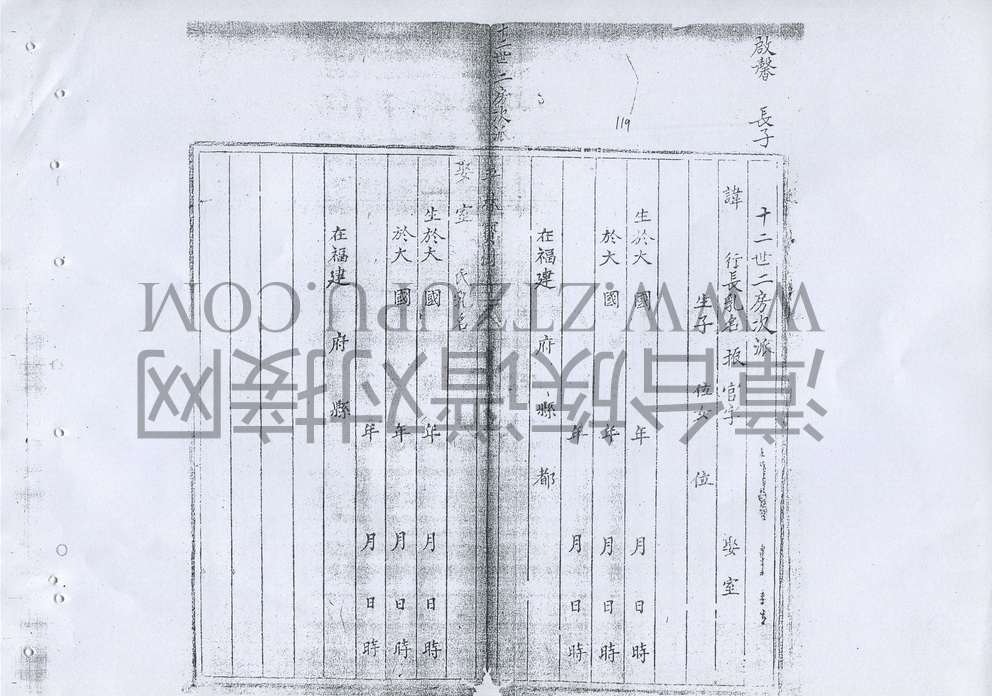 啟馨 長子
十二世二房次派
諱 行長乳名振官字 娶室
生子 位女 位
生於大 國 年 月 日 時
於大 國 年 月 日 時
年 月 日 時
在福建 府 縣 都
119
十二世二房次派
娶室 氏乳名
生於大 國 年 月 日 時
於大 國 年 月 日 時
年 月 日 時
在福建 府 縣
WWW.ZTZUPU.COM
漳台族谱对接网